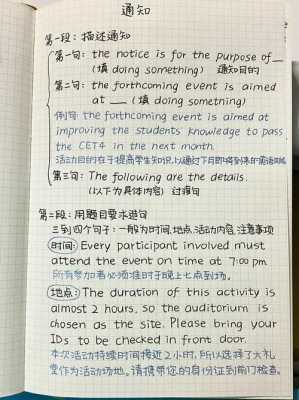 通知
第一段：描述通知
第一句：the notice is for the purpose of__
（填 doing something） 通知目的
第二句：the forthcoming event is aimed
at ___（填 doing something）
例句：the forthcoming event is aimed at
improving the students' knowledge to pass
the CET4 in the next month.
活动目的在于提高学生知识，以通过下月即将到来的英语四级
第三句：The following are the details.
（以下为具体内容）过渡句
第二段：用题目要求造句
三到四个句子：一般为时间、地点、活动内容、注意事项
时间：Every participant involved must
attend the event on time at 7:00 pm
所有参加者必须准时于晚上七点到场。
地点：The duration of this activity is
almost 2 hours, so the auditorium is
chosen as the site. Please bring your
IDs to be checked in front door.
本次活动持续时间接近2小时，所以选择了大礼
堂作为活动场地。请携带您的身份证到前门检查。